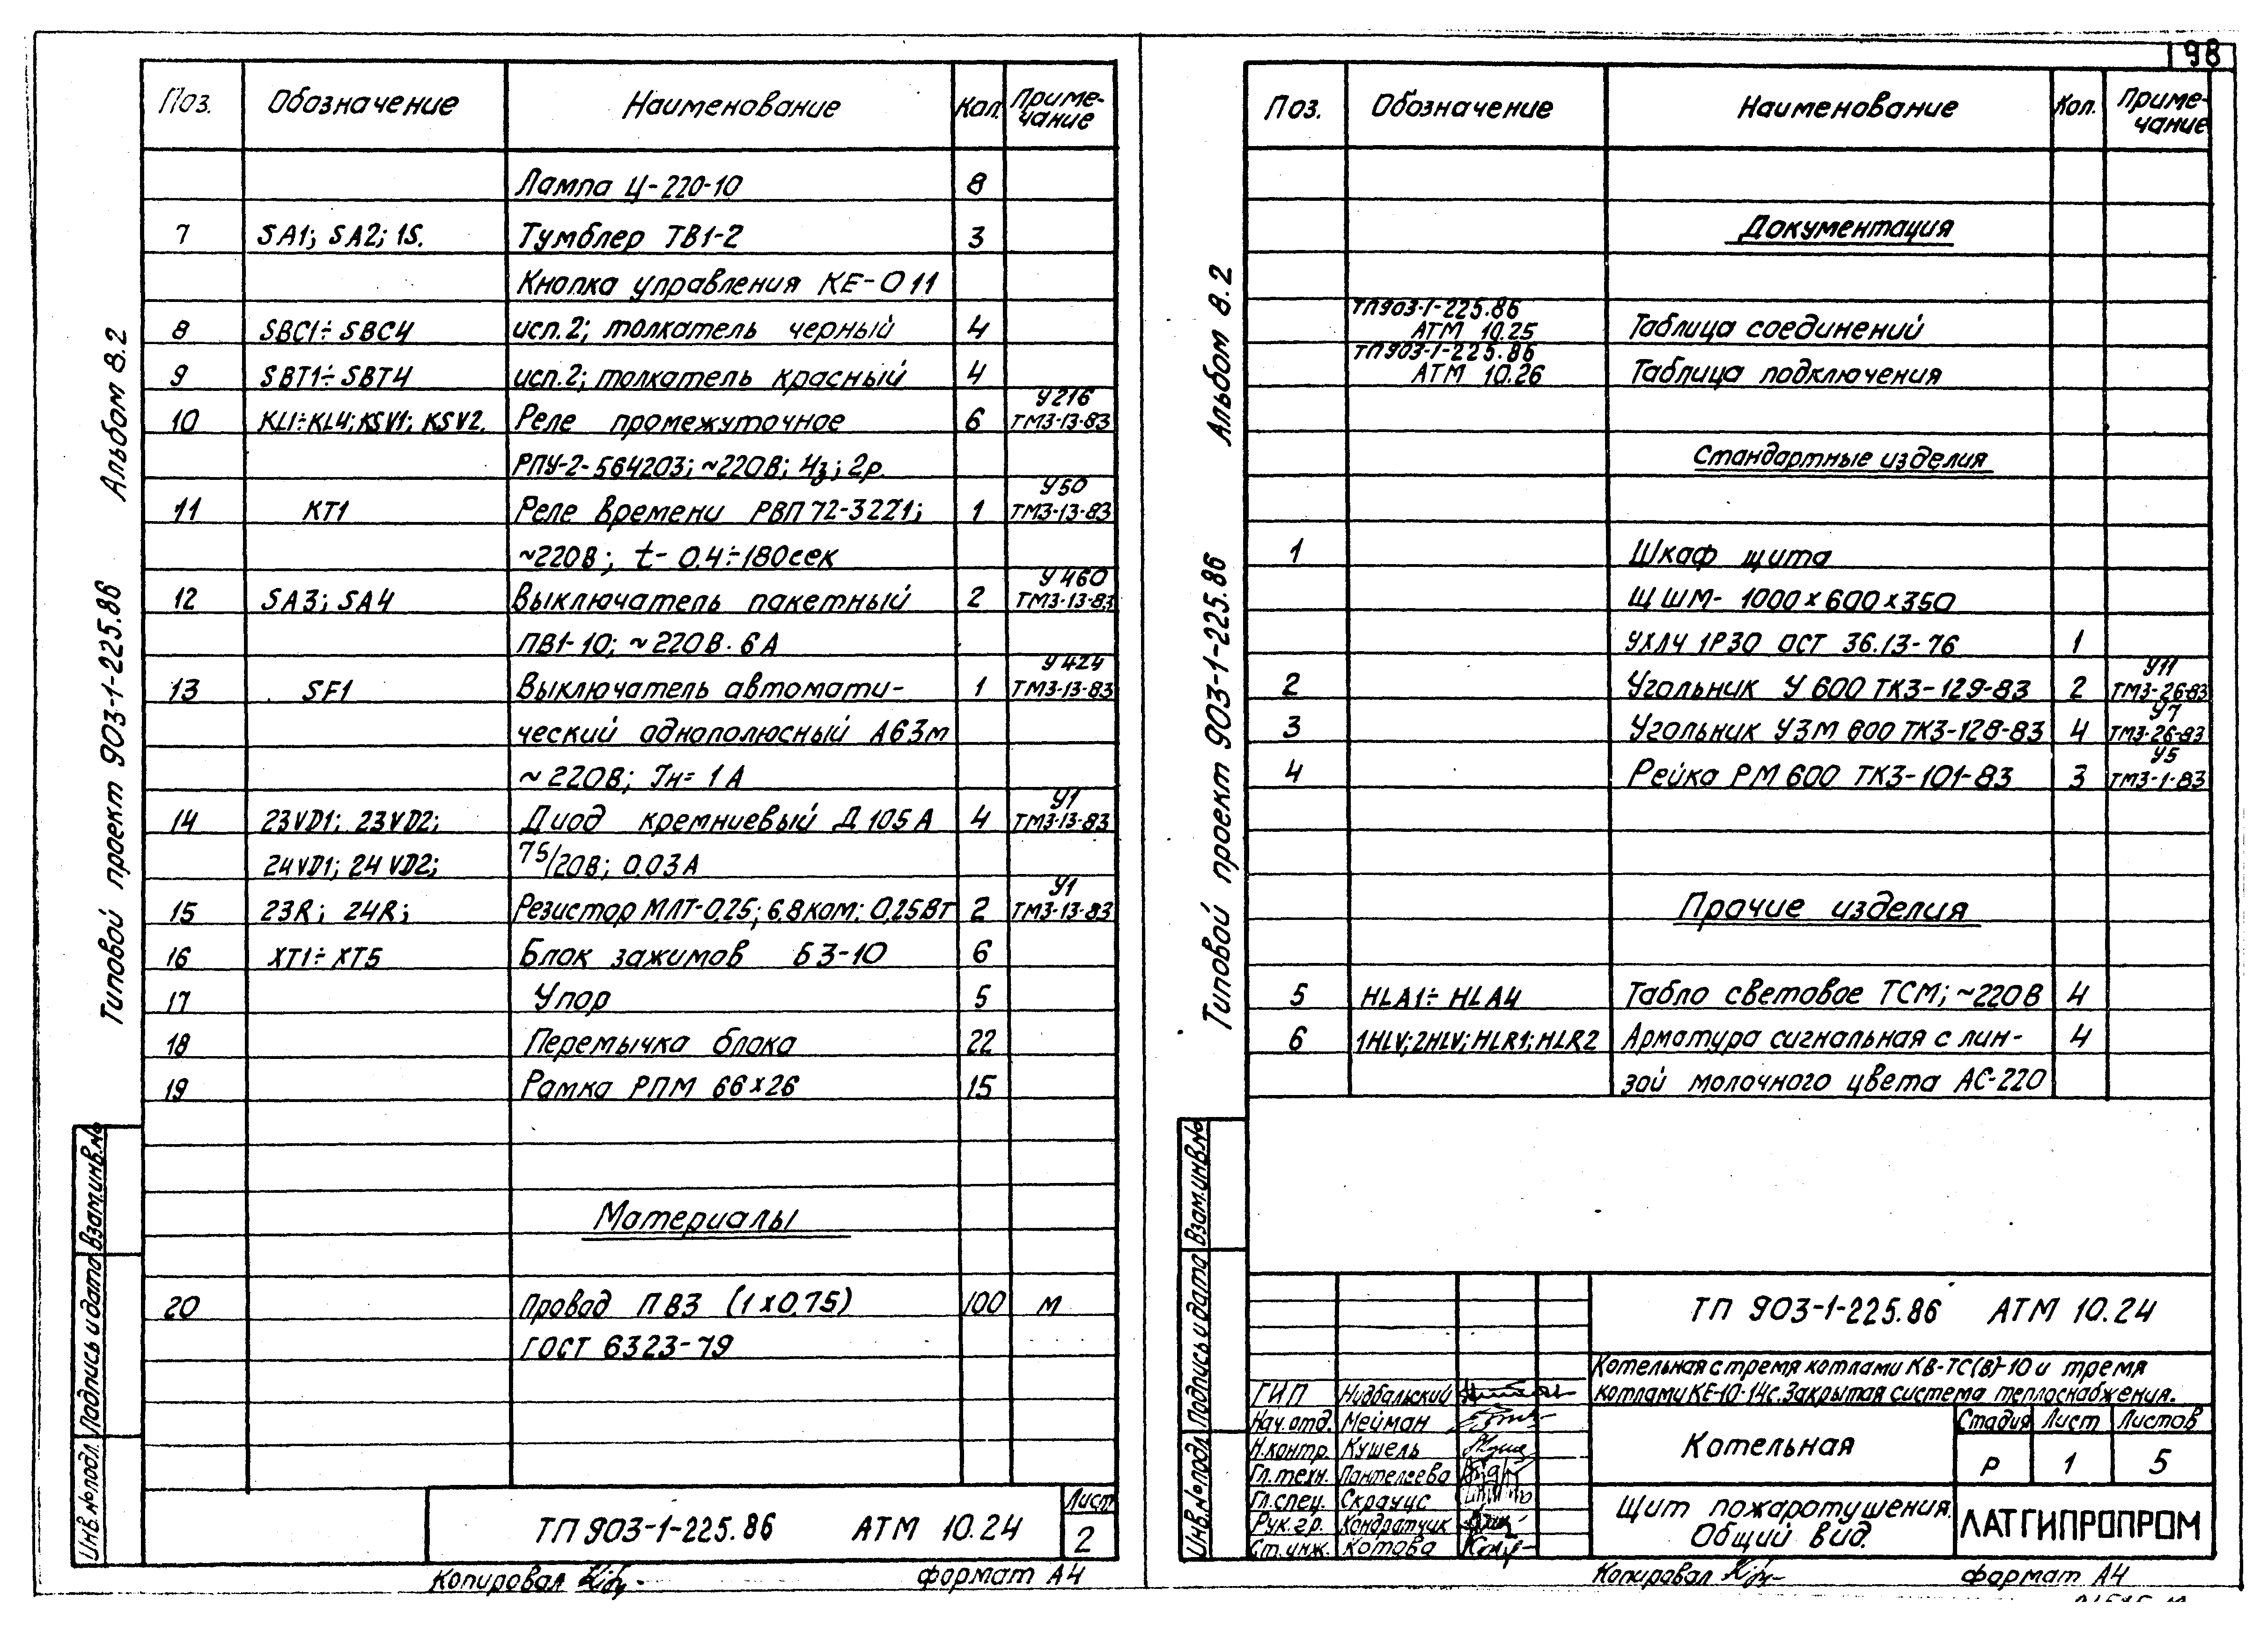 198
Поз. Обозначение Наименование Кол. Приме-
чание
Лампа Ц-220-10 8
7 SA1; SA2; 1S. Тумблер ТВ1-2 3
Кнопка управления КЕ-011
8 SBC1÷SBC4 исп.2; толкатель черный 4
9 SBT1÷SBT4 исп.2; толкатель красный 4
У216
10 KL1÷KL4; KSV1; KSV2. Реле промежуточное 6 ТМ3-13-83
РПУ-2-564203; ~220В; 4з; 2р.
У50
11 КТ1 Реле времени РВП 72-3221; 1 ТМ3-13-83
~220В; t- 0.4÷180сек
У460
12 SA3; SA4 Выключатель пакетный 2 ТМ3-13-83
ПВ1-10; ~220В. 6А
У424
13 SF1 Выключатель автомати- 1 ТМ3-13-83
ческий однополюсный А63м
~220В; Iн= 1А
У1
14 23VD1; 23VD2; Диод кремниевый Д105А 4 ТМ3-13-83
24VD1; 24VD2; 75/20В; 0.03А
У1
15 23R; 24R; Резистор МЛТ-0,25; 6.8ком; 0,25Вт 2 ТМ3-13-83
16 XT1÷XT5 Блок зажимов БЗ-10 6
17 Упор 5
18 Перемычка блока 22
19 Рамка РПМ 66х26 15
Материалы
20 Провод ПВ3 (1х0,75) 100 м
ГОСТ 6323-79
ТП 903-1-225.86 АТМ 10.24
Лист
2
Копировал
формат А4
Типовой проект 903-1-225.86 Альбом 8.2
Взам.инв.№
Подпись и дата
Инв.№ подл.
Поз. Обозначение Наименование Кол. Приме-
чание
Документация
ТП903-1-225.86
АТМ 10.25 Таблица соединений
ТП903-1-225.86
АТМ 10.26 Таблица подключения
Стандартные изделия
1 Шкаф щита
ЩШМ- 1000х600х350
УХЛ4 1Р30 ОСТ 36.13-76 1
У11
2 Угольник У 600 ТК3-129-83 2 ТМ3-26-83
У7
3 Угольник УЗМ 600 ТК3-128-83 4 ТМ3-26-83
У5
4 Рейка РМ 600 ТК3-101-83 3 ТМ3-1-83
Прочие изделия
5 HLA1÷HLA4 Табло световое ТСМ; ~220В 4
6 1HLV; 2HLV; HLR1; HLR2 Арматура сигнальная с лин- 4
зой молочного цвета АС-220
Типовой проект 903-1-225.86 Альбом 8.2
Взам.инв.№
Подпись и дата
Инв.№ подл.
ТП 903-1-225.86 АТМ 10.24
Котельная с тремя котлами КВ-ТС(В)-10 и тремя
котлами КЕ-10-14с. Закрытая система теплоснабжения.
ГИП Нидбальский
Нач.отд. Мейман
Н.контр. Кушель
Гл.техн. Пантелеева
Гл.спец. Скраучс
Рук.гр. Кондратчик
Ст.инж. Котова
Котельная
Стадия Лист Листов
Р 1 5
Щит пожаротушения.
Общий вид.
ЛАТГИПРОПРОМ
Копировал
формат А4